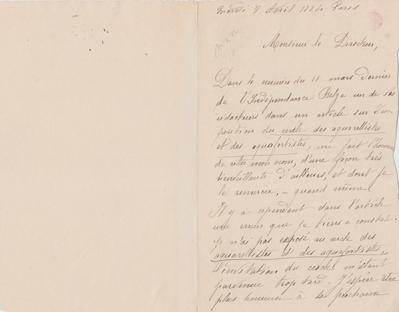 Paris
Monsieur le Directeur,
Dans le numéro du 18 mars dernier
de l'Indépendance Belge un de vos
rédacteurs dans un article sur l'ex
position du cercle des aquarellistes
et des aquafortistes, me fait l'honneur
de citer mon nom, d'une façon très
bienveillante d'ailleurs, et dont je
le remercie, – quand même!
Il y a cependant dans l'article
une erreur que je tiens à constater.
je n'ai pas exposé au cercle des
aquarellistes et des aquafortistes
L'invitation du cercle m'étant
parvenue trop tard. J'espère être
plus heureux à la prochaine